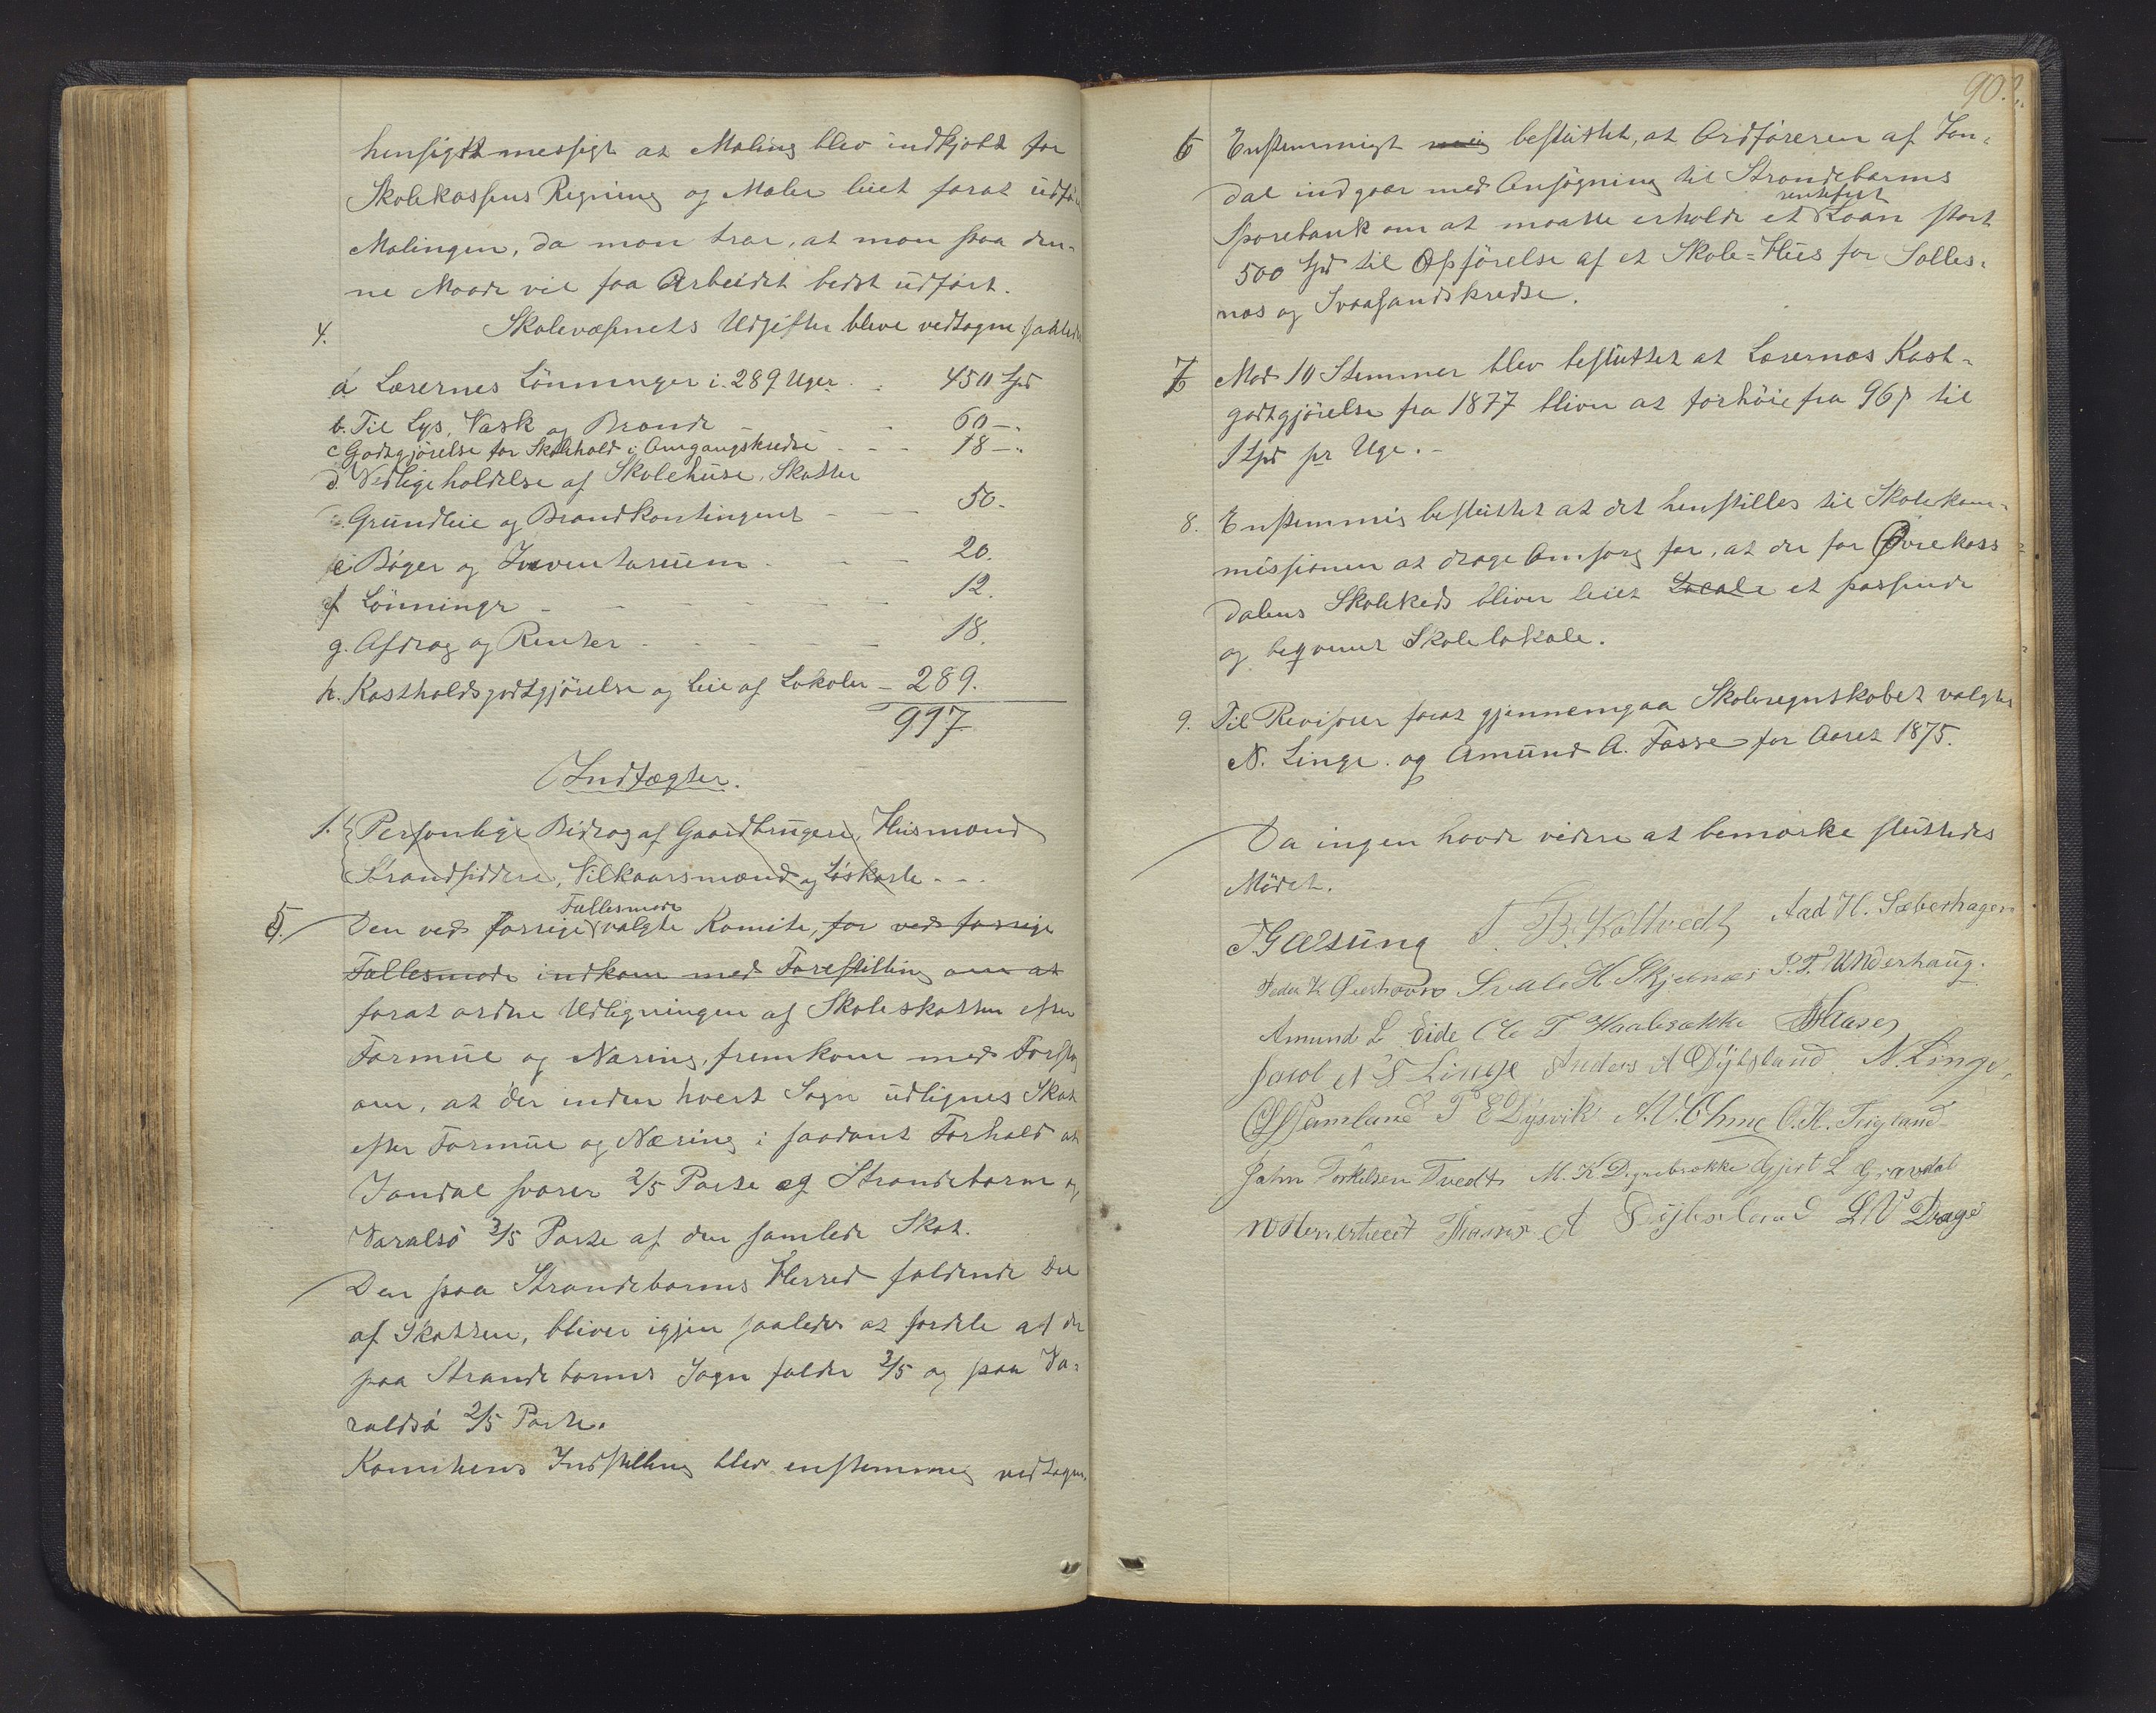 hensigtsmessigt at Maling blev indkjøbt for
Skolekassens Regning og Maler leiet forat udføre
Malingen, da man tror, at man paa den-
ne Maade vil faa Arbeidet bedst udført.
4. Skolevæsnets Udgifter bleve vedtagne saaledes
a Lærernes Lönninger i 289 Uger 450 Spd
b. Til Lys, Vask og Brænde 60 —
c Godtgjörelse for Skolehold i Omgangskredse 18 —
d. Vedligeholdelse af Skolehuse, Skatter
Grundleie og Brandkontingent 50.
e Bøger og Inventarium 20.
f Lönninger 12.
g. Afdrag og Renter 18.
h. Kostholdsgodtgjörelse og leie af Lokaler 289.
917
Indtægter.
1. Personlige Bidrag af Gaardbrugere, Husmænd
Strandsiddere, Vilkaarsmænd og Løskarle
Fællesmøde
5. Den ved forrige valgte Komite, for ved forrige
Fællesmøde indkom med Forestilling om at
forat ordne Udligningen af Skoleskatten efter
Formue og Næring, fremkom med Forslag
om, at der inden hvert Sogn udlignes Skat
efter Formue og Næring i saadant Forhold at
Jondal svarer 2/5 Parte og Strandebarm og
Varalsö 3/5 Parte af den samlede Skat.
Den paa Strandebarms Herred faldende Del
af Skatten, bliver igjen saaledes at fordele at der
paa Strandebarms Sogn falder 3/5 og paa Va-
raldsö 2/5 Parte.
Komiteens Indstilling blev enstemmig vedtagen.
90.
6 Enstemmigt besluttet, at Ordføreren af Jon-
dal indgaar med Ansøgning til Strandebarms
rentefrit
Sparebank om at maatte erholde et Laan stort
500 Spd til Opførelse af et Skole-Hus for Solles-
næs og Svaasandskredse.
7 Mod 10 Stemmer blev besluttet at Lærernes Kost-
godtgjörelse fra 1877 bliver at forhöie fra 96 β til
1 Spd pr Uge. -
8. Enstemmig besluttet at det henstilles til Skolekom-
missionen at drage Omsorg for, at der for Övrekors
dalens Skolekreds bliver leiet Locale et passende
og beqvemt Skolelokale.
9. Til Revisorer forat gjennemgaa Skoleregnskabet valgtes
N. Linge. og Amund A. Fosse for Aaret 1875.
Da ingen havde videre at bemærke sluttedes
Mödet.
T. B. Koltvedt Aad H. Sæberhagen
Peder K Svale H Skjelnæs P. T. Underhaug.
Amund L Eide Ole T
Jacob N S Linge Anders A Dybsland N. Linge
Samland P E Dysvik O. H. Tvigland
John Torkelsen Tvedt M. K. Gjert L Gravdal
Thomas A Dybsland L N Drage